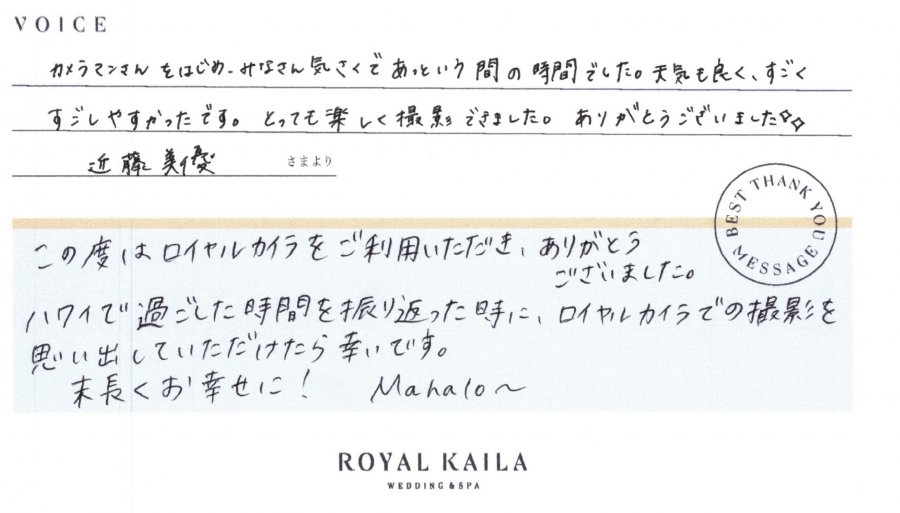 VOICE
カメラマンさんをはじめ、みなさん気さくであっという間の時間でした。天気も良く、すごく
すごしやすかったです。とっても楽しく撮影できました。ありがとうございました✧✧
近藤美優 さまより
BEST THANK YOU MESSAGE
この度はロイヤルカイラをご利用いただき、ありがとう
ございました。
ハワイで過ごした時間を振り返った時に、ロイヤルカイラでの撮影を
思い出していただけたら幸いです。
末長くお幸せに! Mahalo〜
ROYAL KAILA
WEDDING & SPA